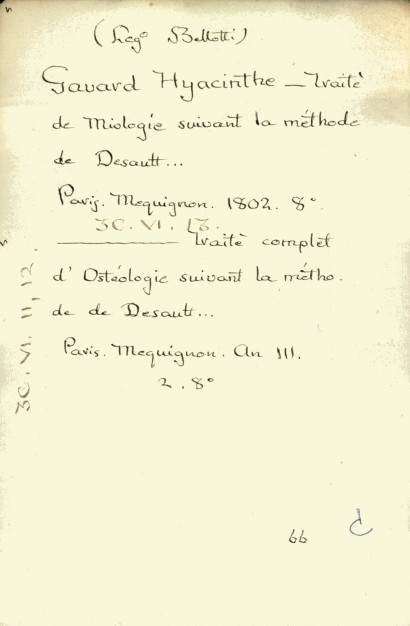 (Lego Bellotti)
Gavard Hyacinthe — Traitè
de Miologie suivant la méthode
de Desault...
Paris. Mequignon. 1802. 8°.
3C. VI. 13.
——— Traitè complèt
d' Ostéologie suivant la métho.
de de Desault...
Paris. Mequignon. An III.
2. 8°
3C. VI. 11, 12.
66